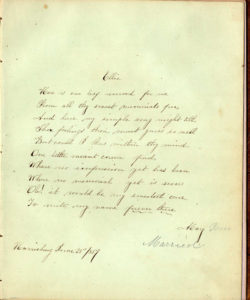 Ellie
Here is one leaf reserved for me
From all thy sweet memorials free
And here my simple song might tell
The feelings thou must guess so well
But could I thus within thy mind
One little vacant corner find
Where no impression yet has been
Where no memorial yet is seen
Oh! it should be my sweetest care
To write my name forever there
May
Married
Harrisburg June 25th